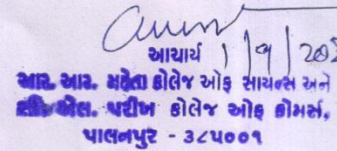 આચાર્ય 1/9/202
આર. આર. મહેતા કોલેજ ઓફ સાયન્સ અને
સી.એલ. પરીખ કોલેજ ઓફ કોમર્સ,
પાલનપુર - ૩૮૫૦૦૧